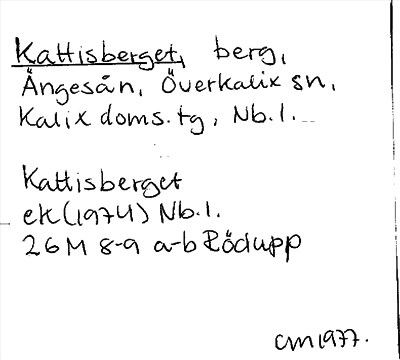 Kattisberget, berg,
Ängesån, Överkalix sn,
Kalix doms.tg, Nb.l.
Kattisberget
ek(1974) Nb.l.
26M 8-9 a-b Rödupp
CM1977.